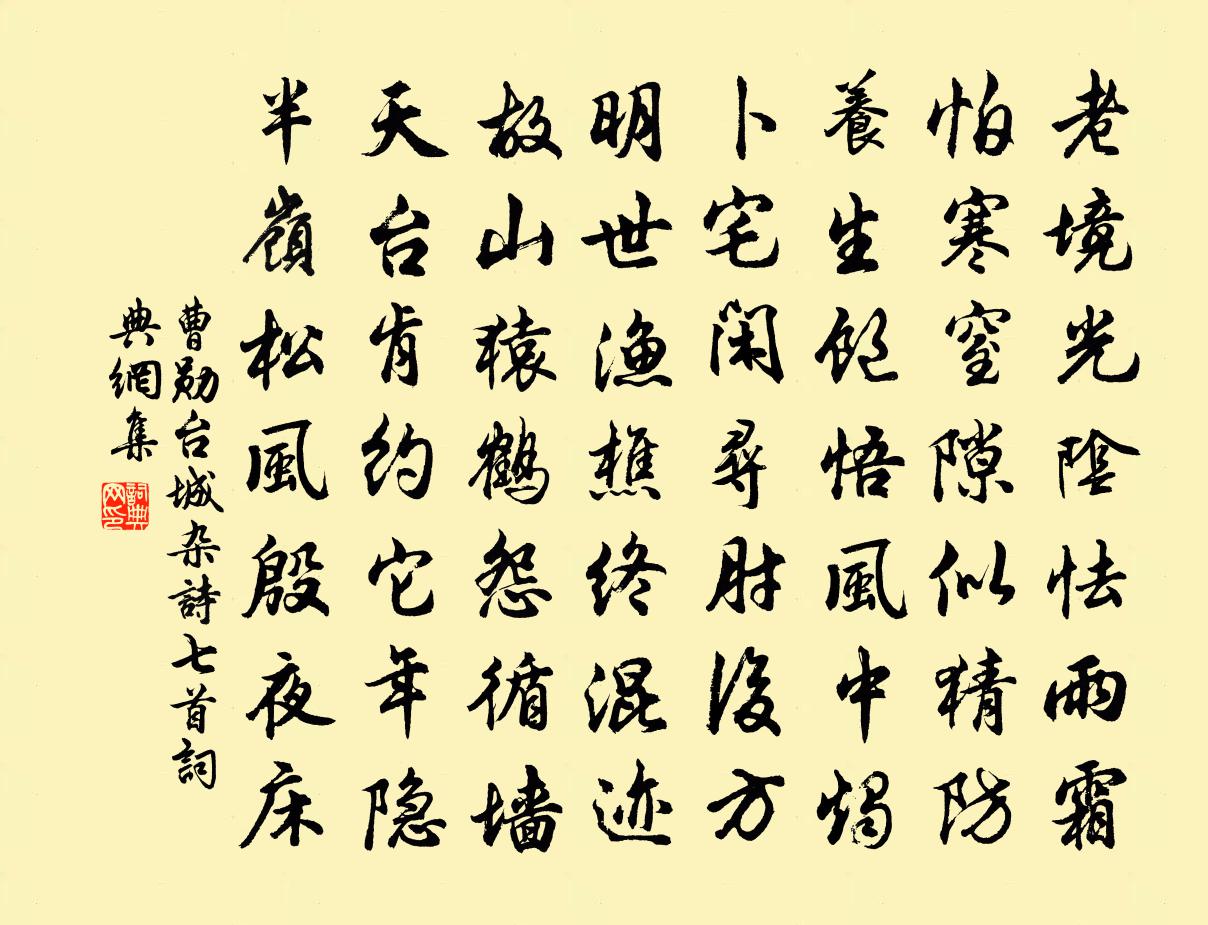 老境光陰怯雨霜
怕寒窒隙似猜防
養生飽悟風中燭
卜宅閑尋肘後方
明世漁樵終混迹
故山猿鶴怨循墻
天台肯約它年隐
半嶺松風殷夜床
曹勛台城杂詩七首詞
典網集
詞典網印